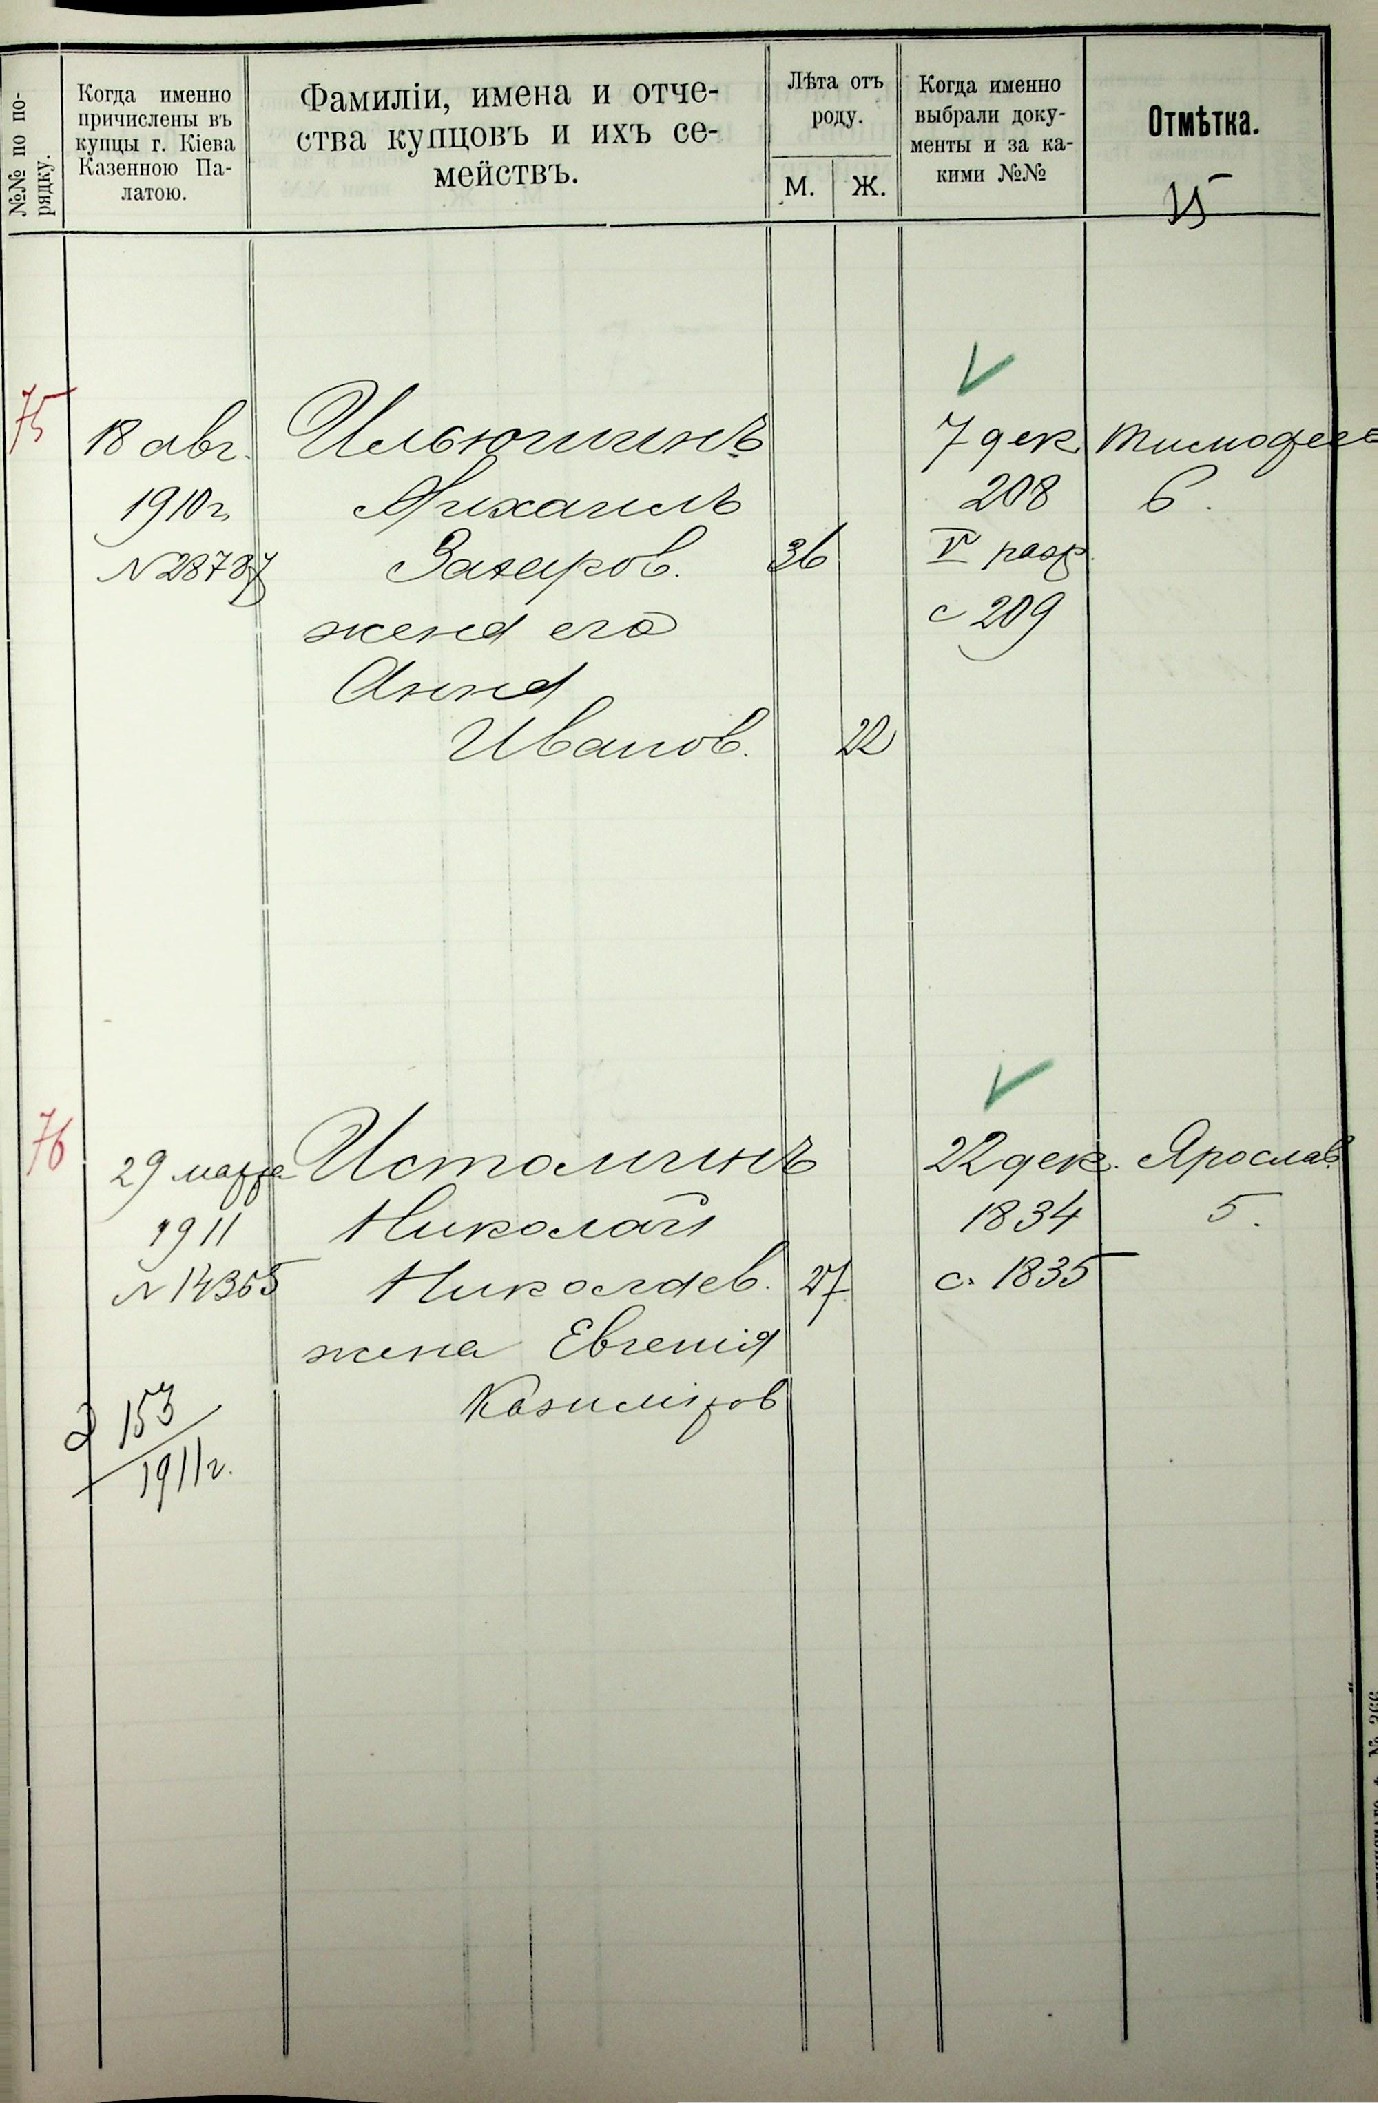 №№ по по-
рядку.
Когда именно
причислены въ
купцы г. Кіева
Казенною Па-
латою.
Фамиліи, имена и отче-
ства купцовъ и ихъ се-
мействъ.
Лѣта отъ
роду.
М. Ж.
Когда именно
выбрали доку-
менты и за ка-
кими №№
Отмѣтка.
75
18 авг.
1910 г.
№ 28737
Ильюшинъ
Михаилъ
Захаров. 36
жена его
Анна
Иванов. 22
7 дек.
208
V разр.
с 209
Тимофеев
6.
76
29 марта
1911
№ 14365
Истоминъ
Николай
Николаев. 27
жена Евгенія
Казиміров
22 дек.
1834
с. 1835
Ярослав.
5.
153
1911 г.